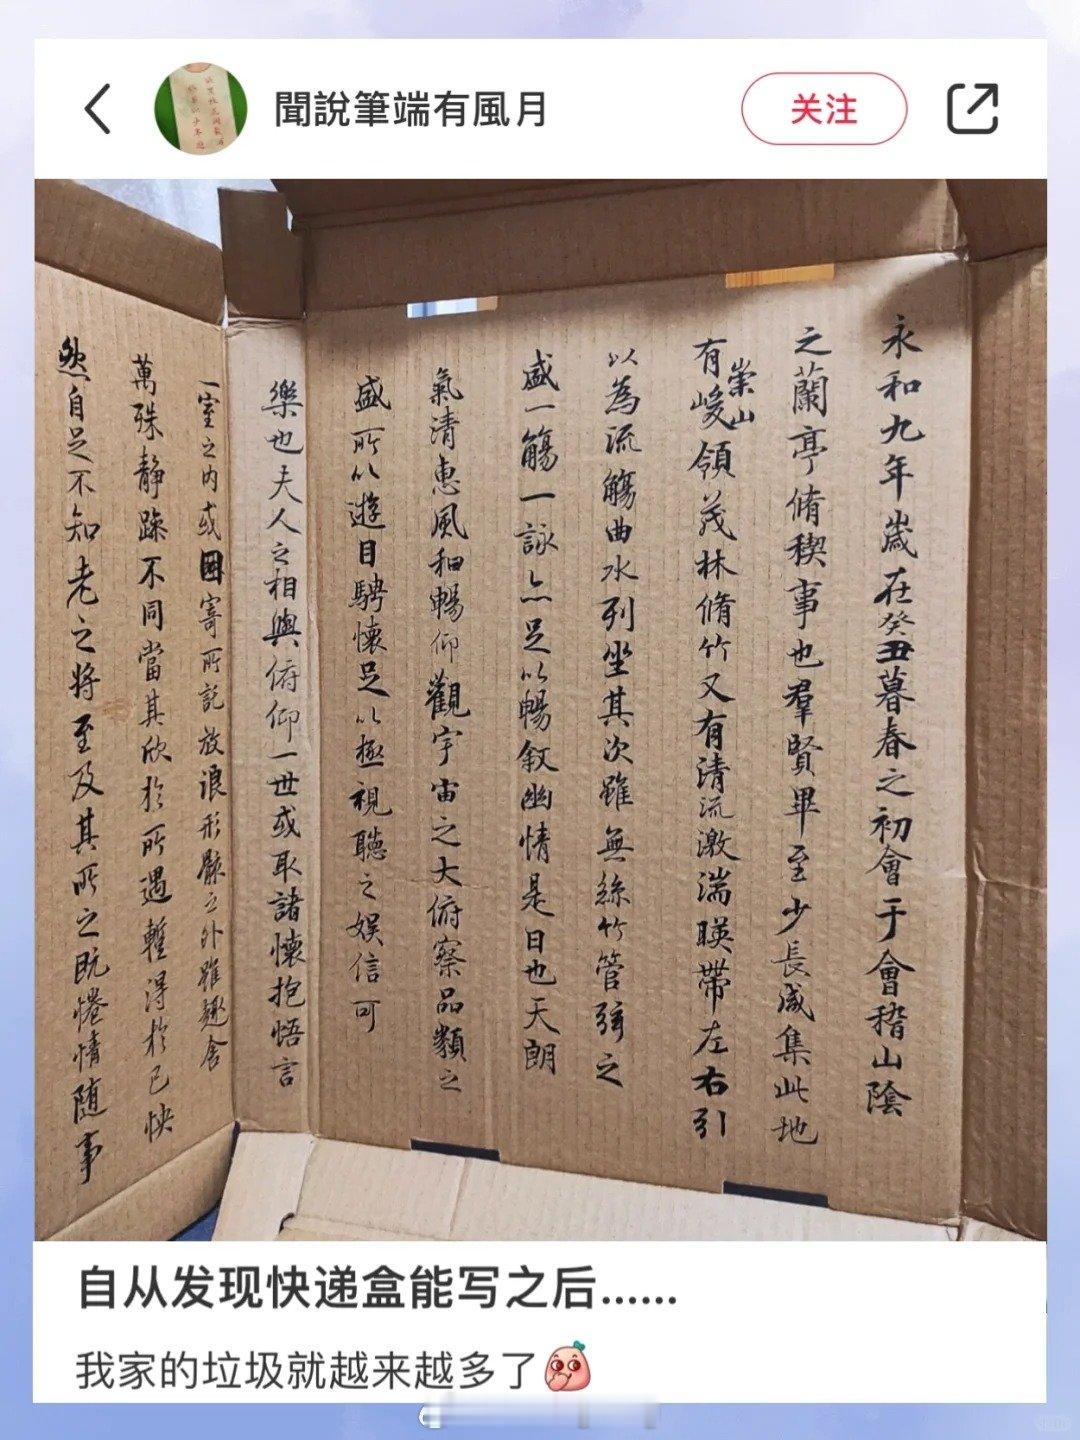 聞說筆端有風月
关注
永和九年歲在癸丑暮春之初會于會稽山陰
之蘭亭脩稧事也羣賢畢至少長咸集此地
有崇山峻領茂林脩竹又有清流激湍暎帶左右引
以為流觴曲水列坐其次雖無絲竹管弦之
盛一觴一詠亦足以暢叙幽情是日也天朗
氣清惠風和暢仰觀宇宙之大俯察品類之
盛所以遊目騁懷足以極視聽之娱信可
樂也夫人之相與俯仰一世或取諸懷抱悟言
一室之内或因寄所託放浪形骸之外雖趣舍
萬殊静躁不同當其欣於所遇暫得於己怏
然自足不知老之将至及其所之既惓情随事
自从发现快递盒能写之后......
我家的垃圾就越来越多了